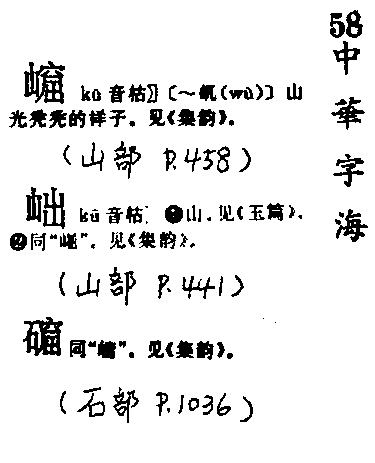 58
中華字海
kū 音枯〗〔～(wù)〕山
光秃秃的样子。见《集韵》。
(山部 P.458)
kū 音枯. ❶山.见《玉篇》.
❷同“”. 见《集韵》.
(山部 P.441)
同“”. 见《集韵》.
(石部 P.1036)